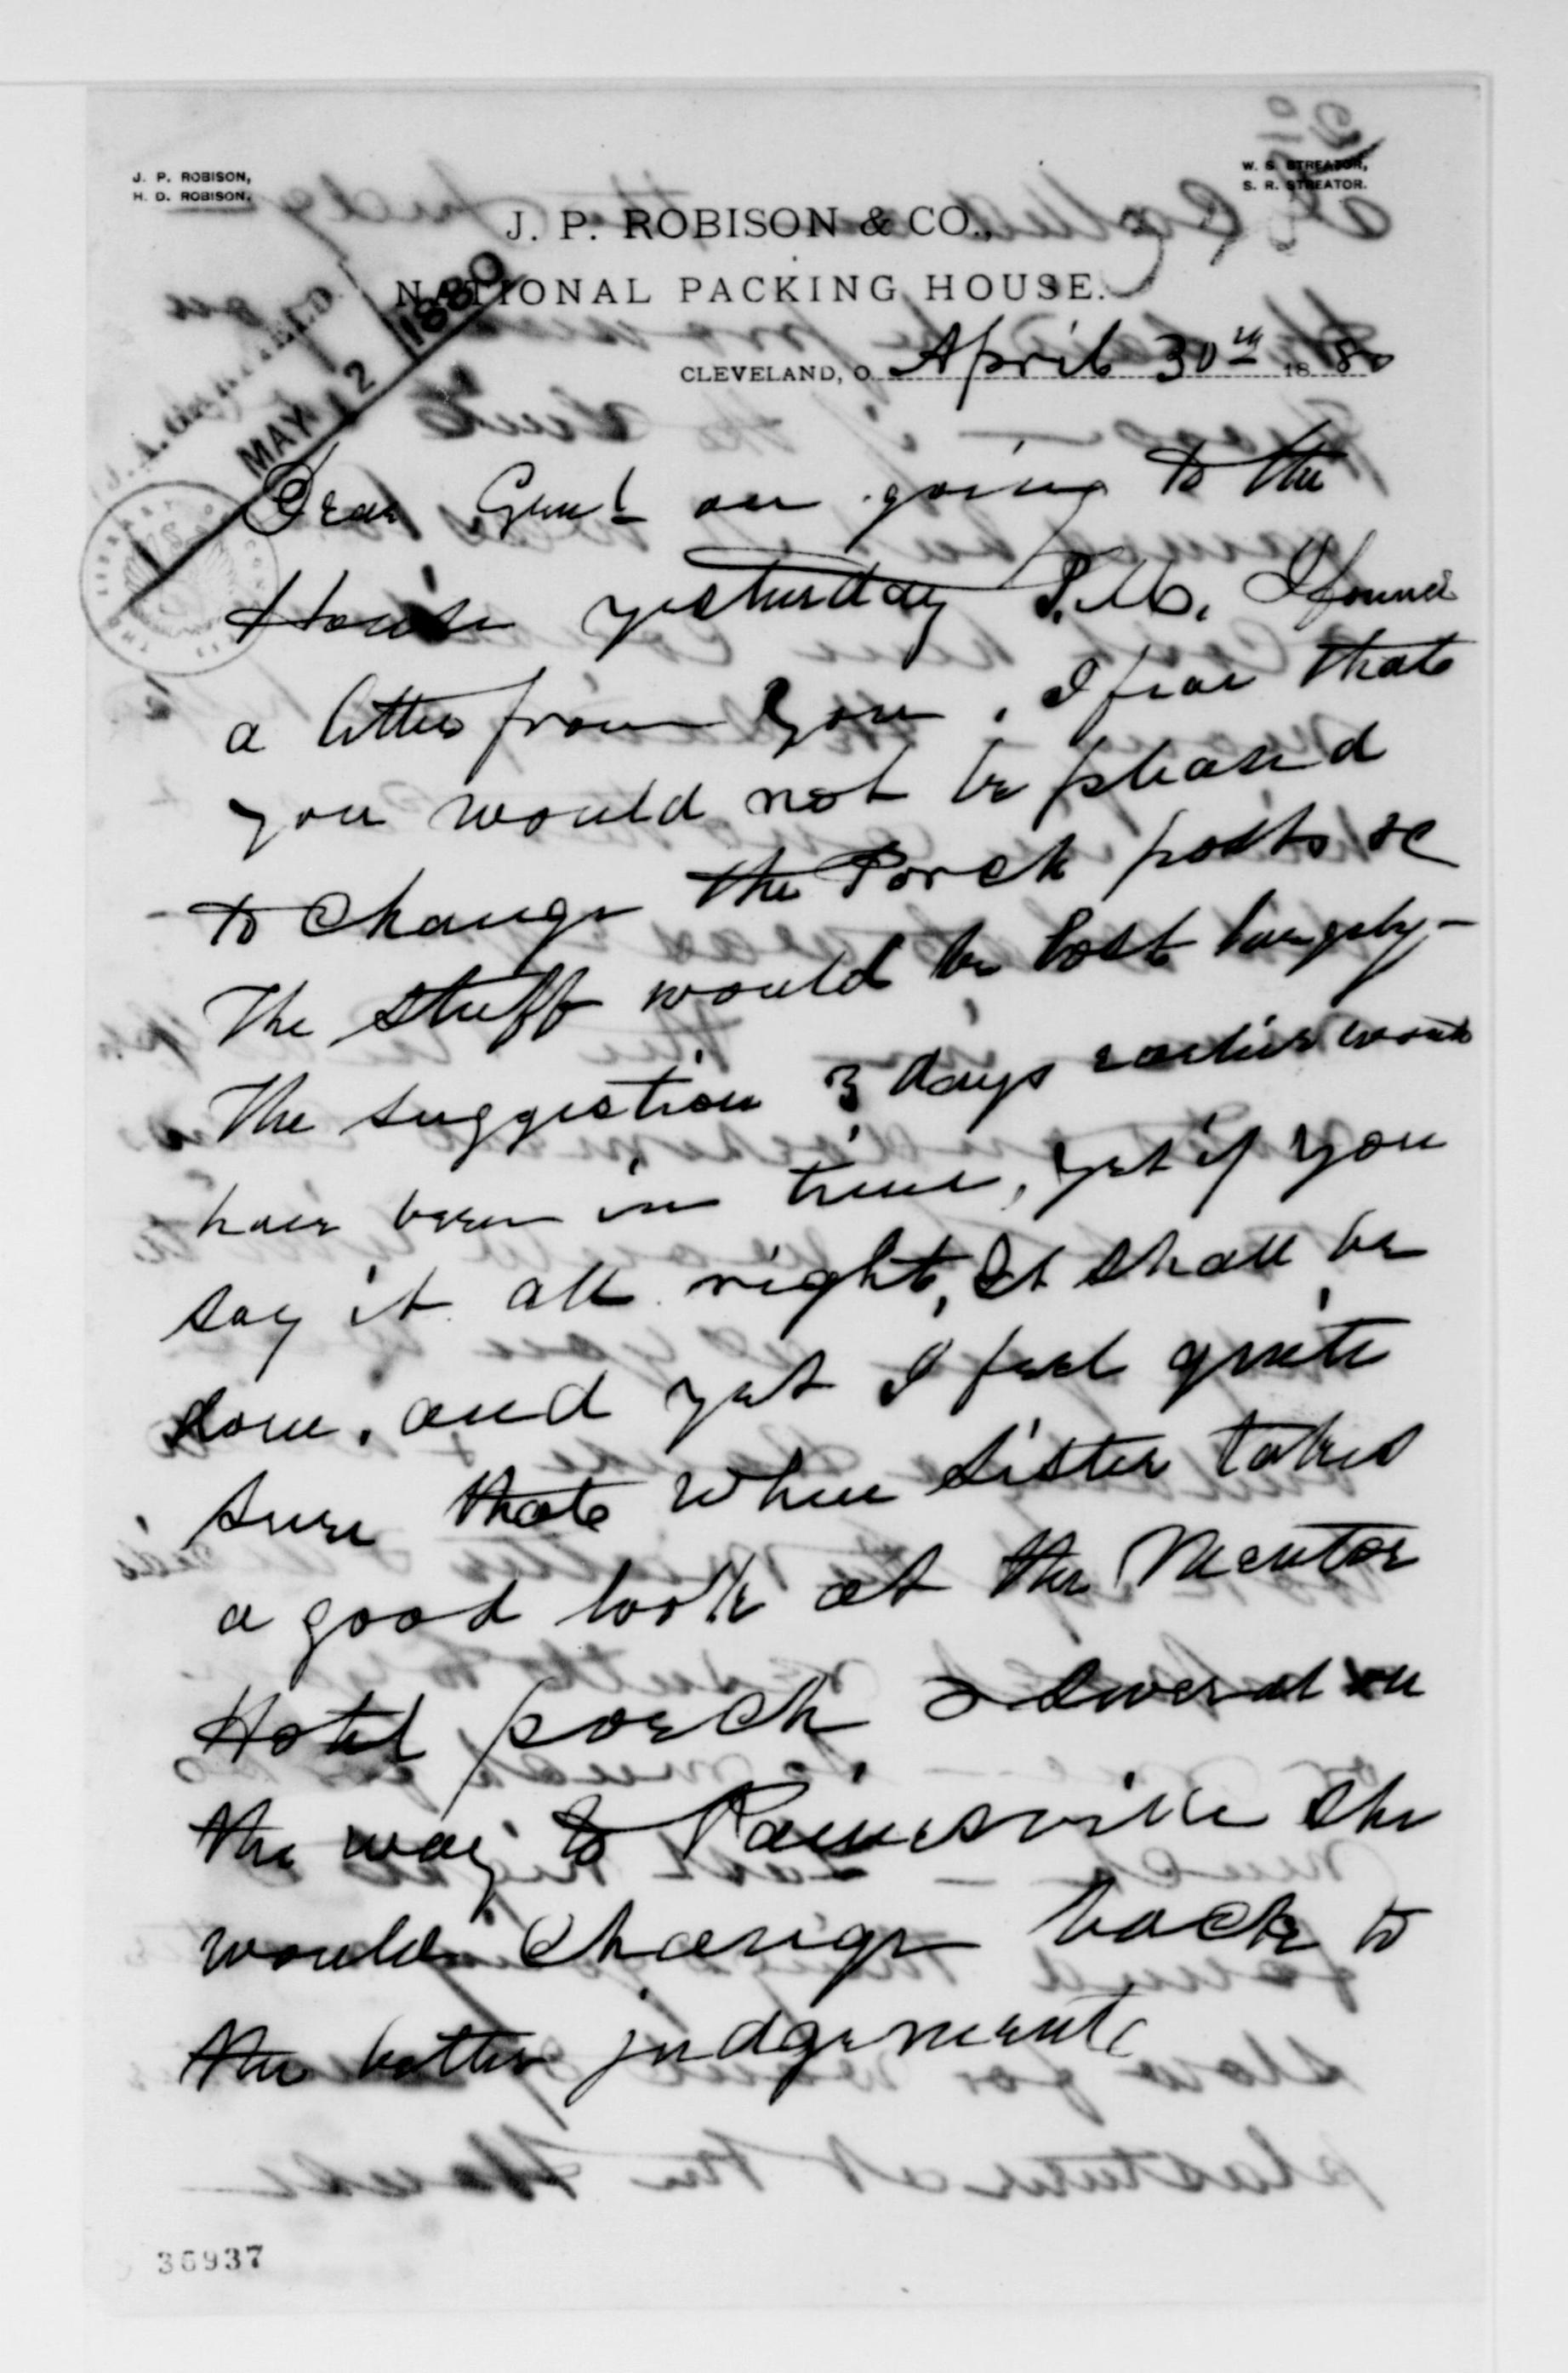 J. P. ROBISON,
H. D. ROBISON.
W. S. STREATOR,
S. R. STREATOR.
J. P. ROBISON & CO.,
NATIONAL PACKING HOUSE.
CLEVELAND, O. April 30th 1880
MAY 2 1880
Dear Genl on going to the
House yesterday P.M. I found
a letter from you, I fear that
you would not be pleased
to change the Porch posts &c
The stuff would be lost largely-
The suggestion 3 days earlier would
have been in time, yet if you
say it all right, It shall be
done, and yet I feel quite
sure that when Sister takes
a good look at the Mentor
Hotel porch & several on
the way to Painesville she
would change back to
the better judgement
36937